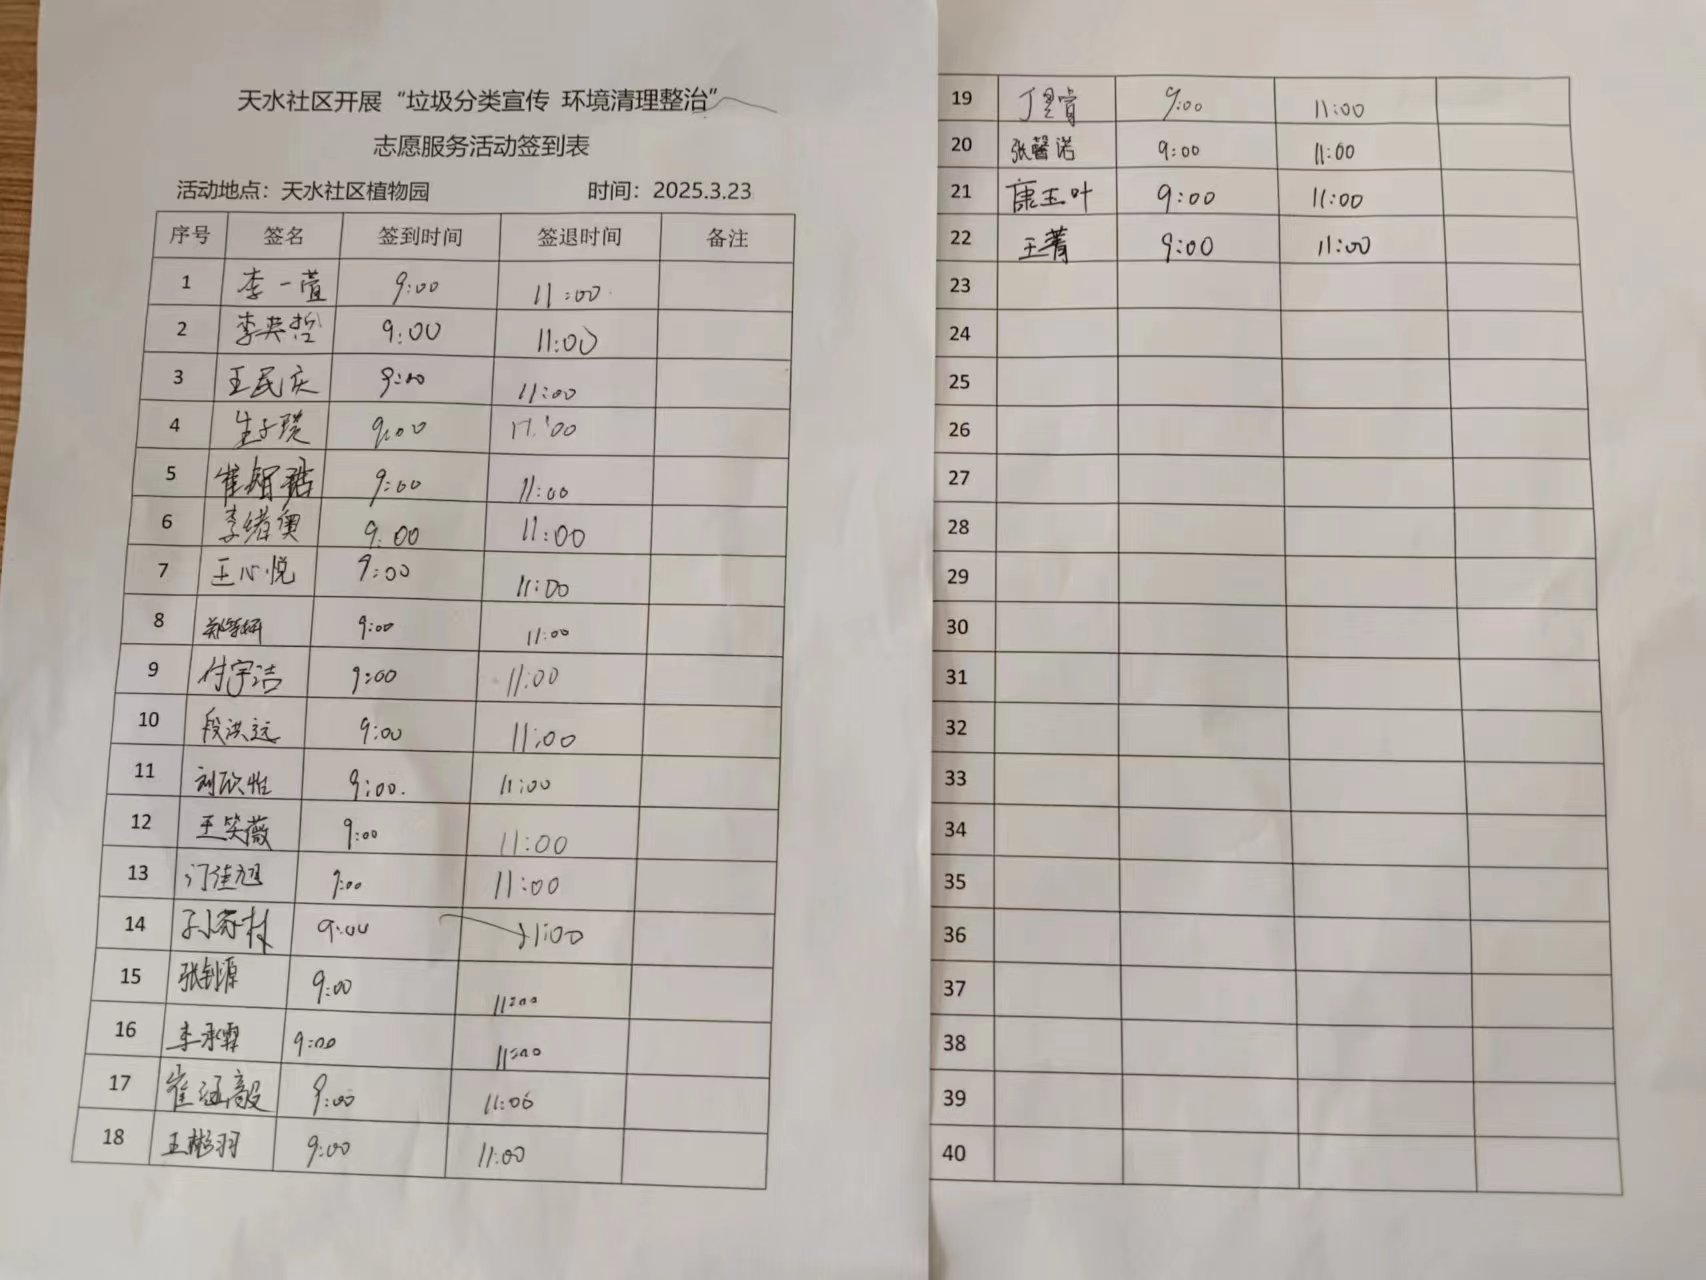 天水社区开展“垃圾分类宣传 环境清理整治”
志愿服务活动签到表
活动地点：天水社区植物园 时间：2025.3.23
序号 签名 签到时间 签退时间 备注
1 李一萱 9:00 11:00
2 李英哲 9:00 11:00
3 王民庆 9:00 11:00
4 生子瑛 9:00 11:00
5 崔智喆 9:00 11:00
6 李绪奥 9:00 11:00
7 王心悦 9:00 11:00
8 9:00 11:00
9 付宇洁 9:00 11:00
10 段洪远 9:00 11:00
11 刘欣怡 9:00 11:00
12 王笑薇 9:00 11:00
13 门佳旭 9:00 11:00
14 9:00 11:00
15 张钊源 9:00 11:00
16 李承霖 9:00 11:00
17 崔涵毅 9:00 11:00
18 王彬羽 9:00 11:00
19 9:00 11:00
20 张馨诺 9:00 11:00
21 康玉叶 9:00 11:00
22 王菁 9:00 11:00
23
24
25
26
27
28
29
30
31
32
33
34
35
36
37
38
39
40